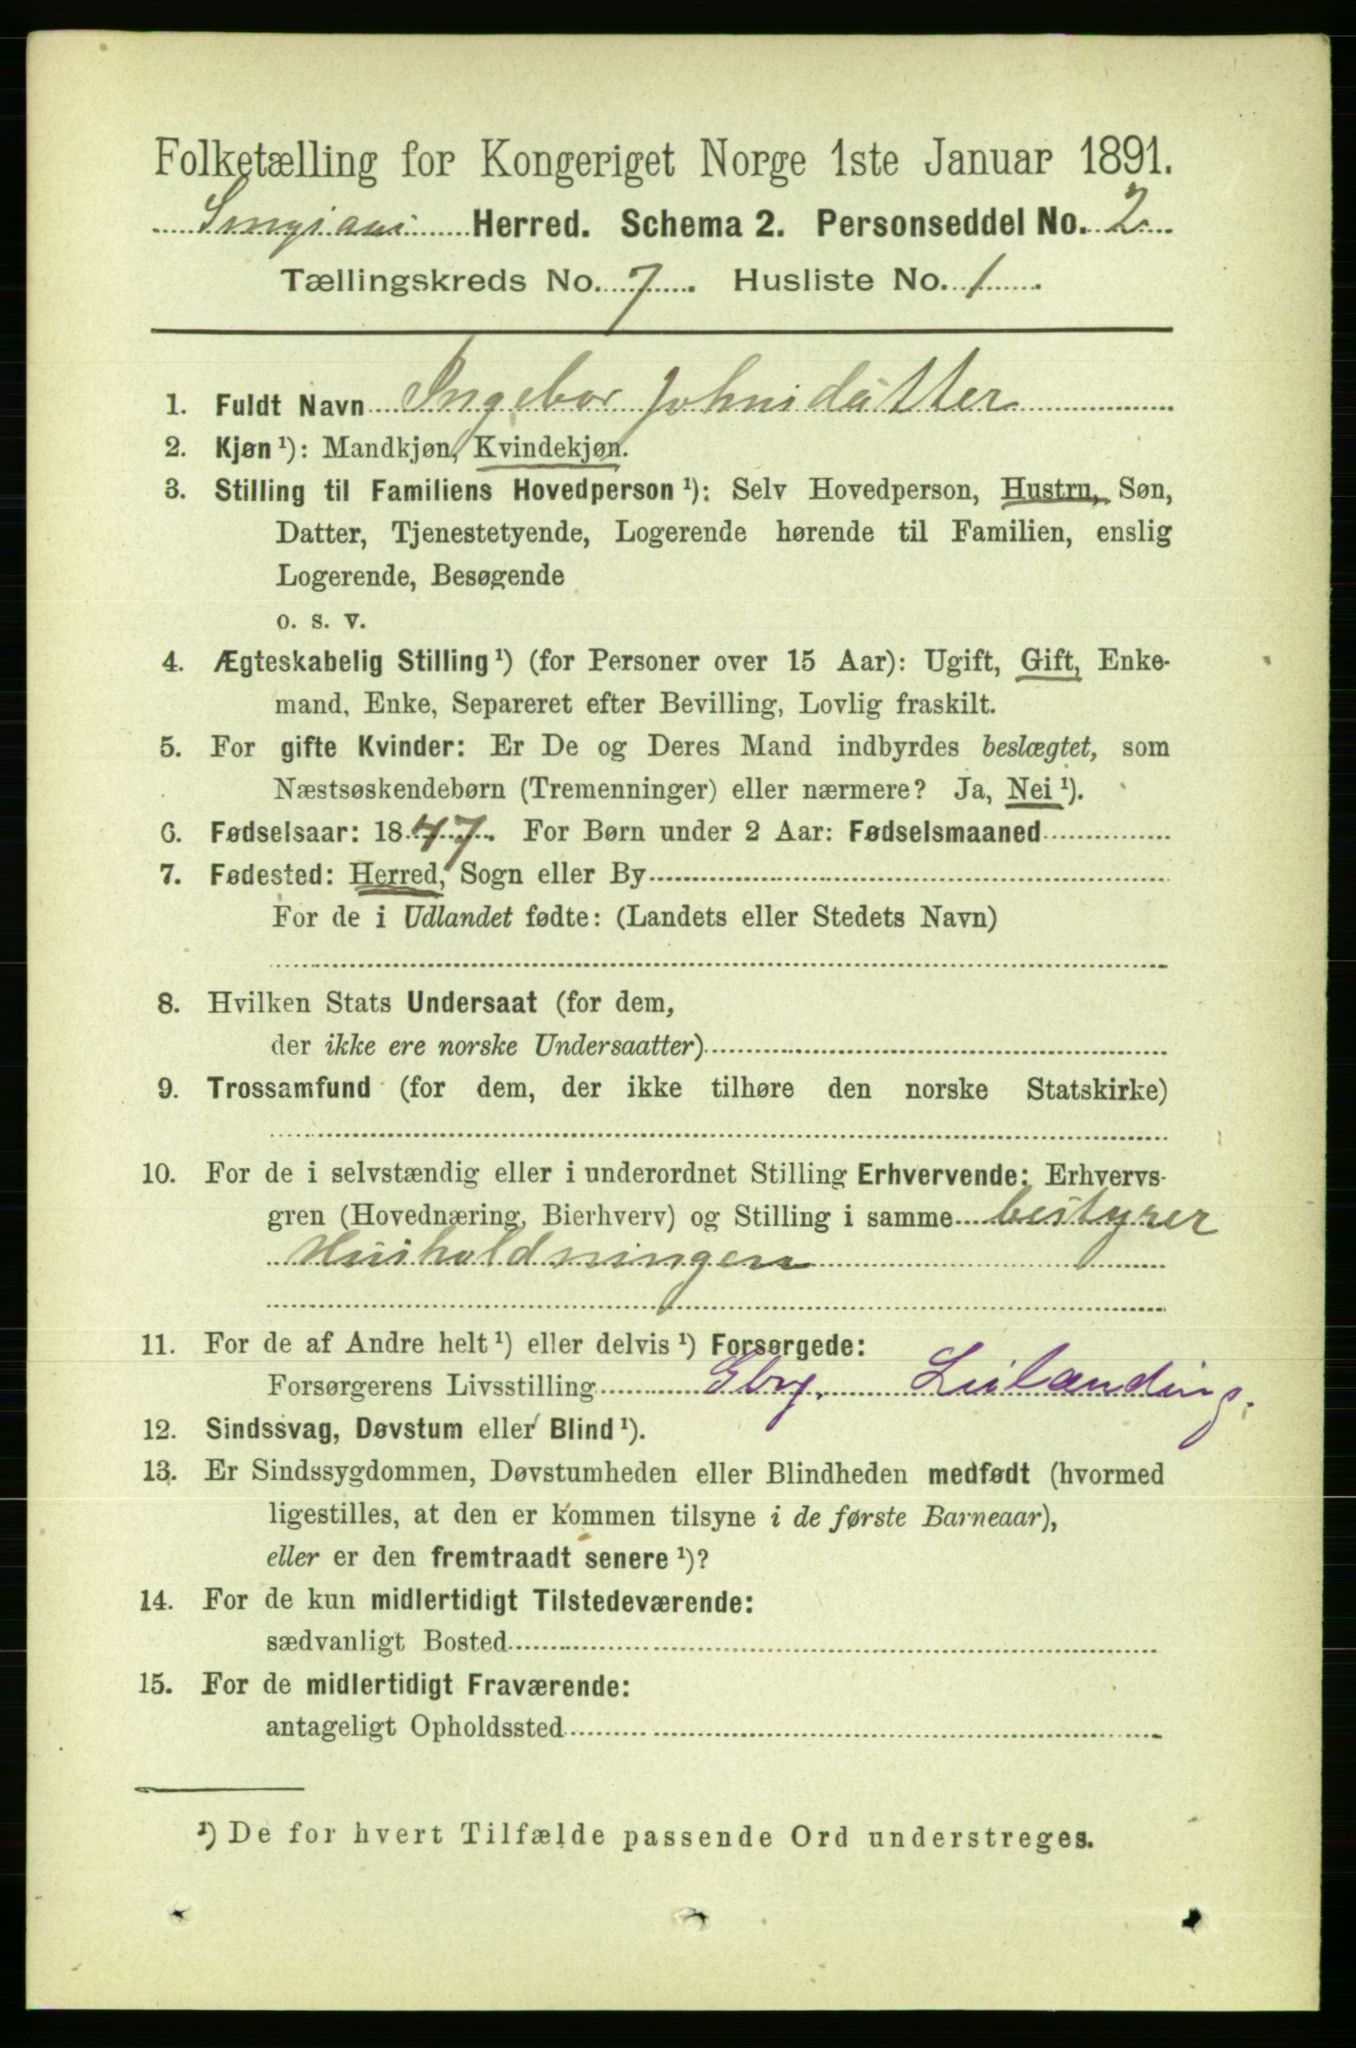 Folketælling for Kongeriget Norge 1ste Januar 1891.
Herred. Schema 2. Personseddel No. 2
Tællingskreds No. 7. Husliste No. 1
1. Fuldt Navn Ingebor Johnsdatter
2. Kjøn ¹): Mandkjøn, Kvindekjøn.
3. Stilling til Familiens Hovedperson ¹): Selv Hovedperson, Hustru, Søn,
Datter, Tjenestetyende, Logerende hørende til Familien, enslig
Logerende, Besøgende
o. s. v.
4. Ægteskabelig Stilling ¹) (for Personer over 15 Aar): Ugift, Gift, Enke-
mand, Enke, Separeret efter Bevilling, Lovlig fraskilt.
5. For gifte Kvinder: Er De og Deres Mand indbyrdes beslægtet, som
Næstsøskendebørn (Tremenninger) eller nærmere? Ja, Nei ¹).
6. Fødselsaar: 1847. For Børn under 2 Aar: Fødselsmaaned
7. Fødested: Herred, Sogn eller By
For de i Udlandet fødte: (Landets eller Stedets Navn)
8. Hvilken Stats Undersaat (for dem,
der ikke ere norske Undersaatter)
9. Trossamfund (for dem, der ikke tilhøre den norske Statskirke)
10. For de i selvstændig eller i underordnet Stilling Erhvervende: Erhvervs-
gren (Hovednæring, Bierhverv) og Stilling i samme bestyrer
Husholdningen
11. For de af Andre helt ¹) eller delvis ¹) Forsørgede:
Forsørgerens Livsstilling Gbrg. Leilænding.
12. Sindssvag, Døvstum eller Blind ¹).
13. Er Sindssygdommen, Døvstumheden eller Blindheden medfødt (hvormed
ligestilles, at den er kommen tilsyne i de første Barneaar),
eller er den fremtraadt senere ¹)?
14. For de kun midlertidigt Tilstedeværende:
sædvanligt Bosted
15. For de midlertidigt Fraværende:
antageligt Opholdssted
¹) De for hvert Tilfælde passende Ord understreges.